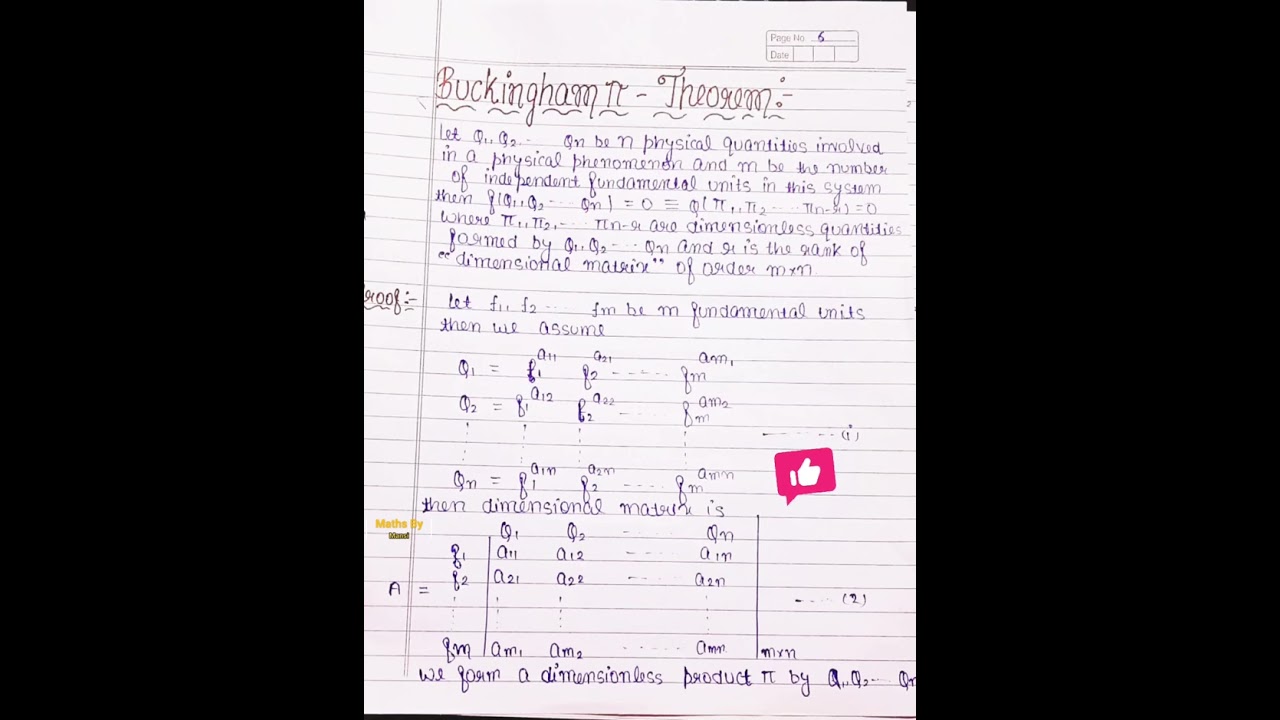 Page No 6
Date
Buckingham π - Theorem:-
Let Q1, Q2 ---- Qn be n physical quantities involved
in a physical phenomenon and m be the number
of independent fundamental units in this system
then f(Q1, Q2 --- Qn) = 0 ≡ Q(π1, π2 ---- πn-r) = 0
where π1, π2, ---- πn-r are dimensionless quantities
formed by Q1, Q2 --- Qn and r is the rank of
"dimensional matrix" of order m×n
roof:- Let f1, f2 ---- fm be m fundamental units
then we assume
Q1 = f1^a11 f2^a21 ----- fm^am1
Q2 = f1^a12 f2^a22 ---- fm^am2
-------(i)
Qn = f1^a1n f2^a2n ---- fm^amn
then dimensional matrix is
Maths By
Mansi
Q1 Q2 ---- Qn
f1 a11 a12 ---- a1n
f2 a21 a22 ---- a2n
A = ----(2)
fm am1 am2 ----- amn m×n
we form a dimensionless product π by Q1, Q2 --- Qn